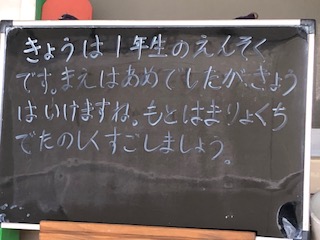 きょうは1年生のえんそく
です。まえはあめでしたが、きょう
はいけますね。もとはまりょくち
でたのしくすごしましょう。